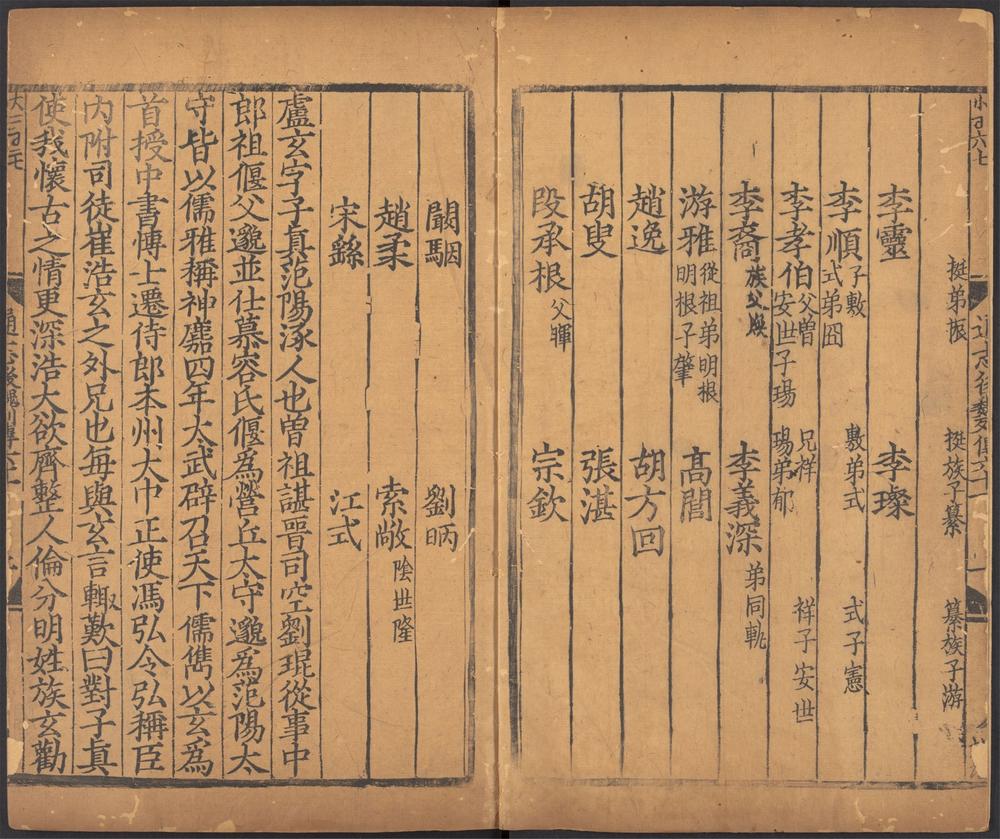 挺弟振 挺族子纂 纂族子游
李靈 李璨
李順 子敷 敷弟式 式子憲 式弟囧
李孝伯 父曾 兄祥 祥子安世 安世子瑒 瑒弟郁
李裔 族父煥 李義深 弟同軌
游雅 從祖弟明根 明根子肇 高閭
趙逸 胡方回
胡叟 張湛
段承根 父暉 宗欽
闞駰 劉昞
趙柔 索敞 陰世隆
宋繇 江式
盧玄字子真范陽涿人也曽祖諶晋司空劉琨從事中
郎祖偃父邈並仕慕容氏偃為營丘太守邈為范陽太
守皆以儒雅稱神䴥四年太武辟召天下儒雋以玄為
首授中書博士遷侍郎本州大中正使馮弘令弘稱臣
内附司徒崔浩玄之外兄也每與玄言輙歎曰對子真
使我懷古之情更深浩大欲齊整人倫分明姓族玄勸